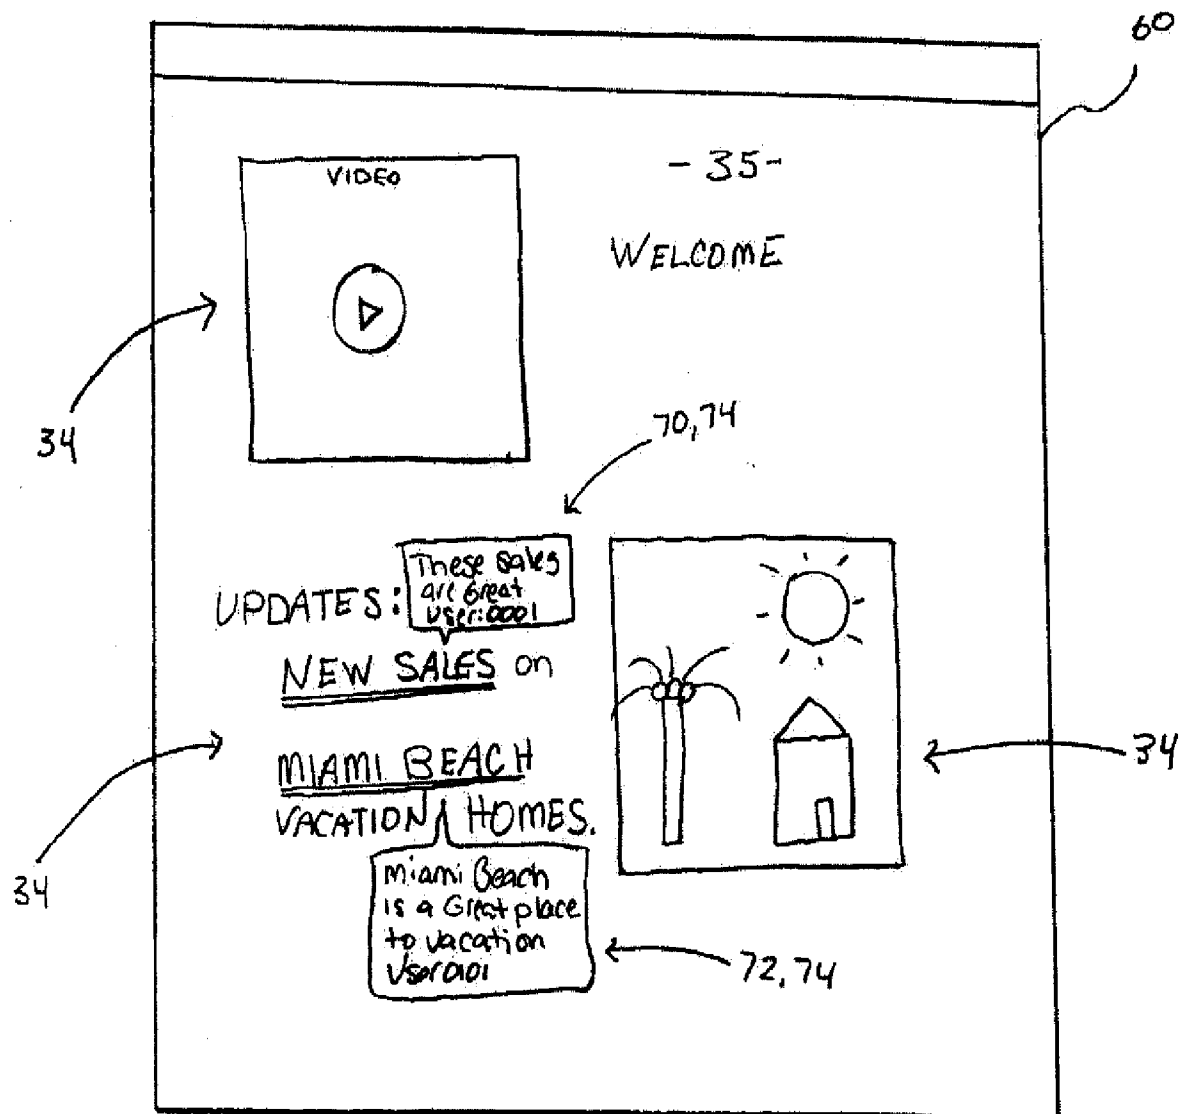 60
VIDEO
- 35-
WELCOME
34
70,74
These sales
are Great
User:0001
UPDATES:
NEW SALES on
MIAMI BEACH
34
VACATION HOMES.
34
Miami Beach
is a Great place
to vacation
User 0101
72,74